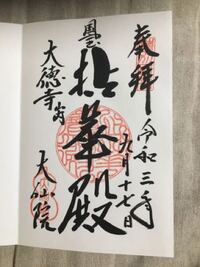 奉拝
令和三年
九月十七日
拈華殿
大徳寺内
大仙院